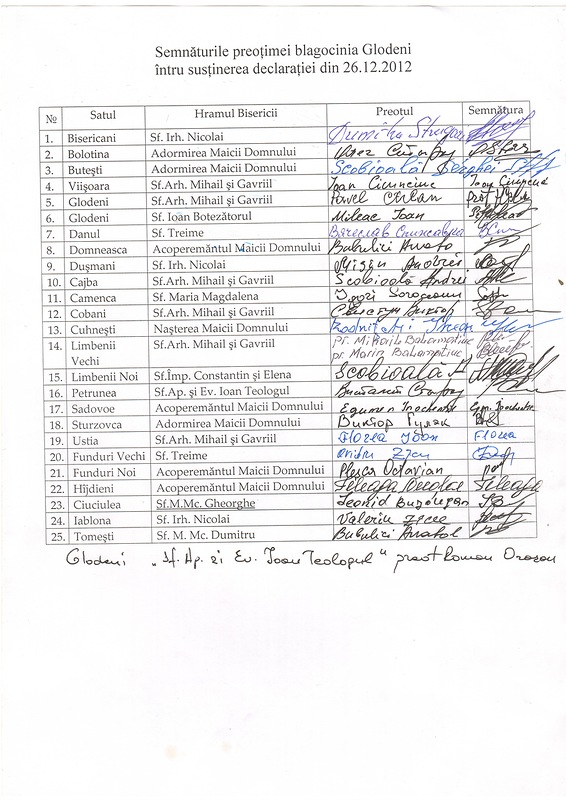 Semnăturile preoțimei blagocinia Glodeni
întru susținerea declarației din 26.12.2012
№ Satul Hramul Bisericii Preotul Semnătura
1. Bisericani Sf. Irh. Nicolai Dumitru
2. Bolotina Adormirea Maicii Domnului
3. Butești Adormirea Maicii Domnului Scobioală Serghei
4. Viișoara Sf.Arh. Mihail și Gavriil Ioan Ciunciuc
5. Glodeni Sf.Arh. Mihail și Gavriil Pavel
6. Glodeni Sf. Ioan Botezătorul Mileac Ioan
7. Danul Sf. Treime Вячеслав
8. Domneasca Acoperemântul Maicii Domnului Babulici
9. Dușmani Sf. Irh. Nicolai Andrei
10. Cajba Sf.Arh. Mihail și Gavriil Scobioală Andrei
11. Camenca Sf. Maria Magdalena
12. Cobani Sf.Arh. Mihail și Gavriil Виктор
13. Cuhnești Nașterea Maicii Domnului
14. Limbenii Vechi Sf.Arh. Mihail și Gavriil pr. Mihail Balamatiuc
pr. Marin Balamatiuc
15. Limbenii Noi Sf.Împ. Constantin și Elena Scobioală
16. Petrunea Sf.Ap. și Ev. Ioan Teologul
17. Sadovoe Acoperemântul Maicii Domnului Egumen Inochentie
18. Sturzovca Adormirea Maicii Domnului Виктор Гуляк
19. Ustia Sf.Arh. Mihail și Gavriil Florea Ioan Florea
20. Funduri Vechi Sf. Treime
21. Funduri Noi Acoperemântul Maicii Domnului Pleșca Octavian
22. Hîjdieni Acoperemântul Maicii Domnului Teleaga Nicolae Teleaga
23. Ciuciulea Sf.M.Mc. Gheorghe Leonid
24. Iablona Sf. Irh. Nicolai Valeriu
25. Tomești Sf. M. Mc. Dumitru Babulici Anatol
Glodeni „Sf. Ap. și Ev. Ioan Teologul" preot Roman